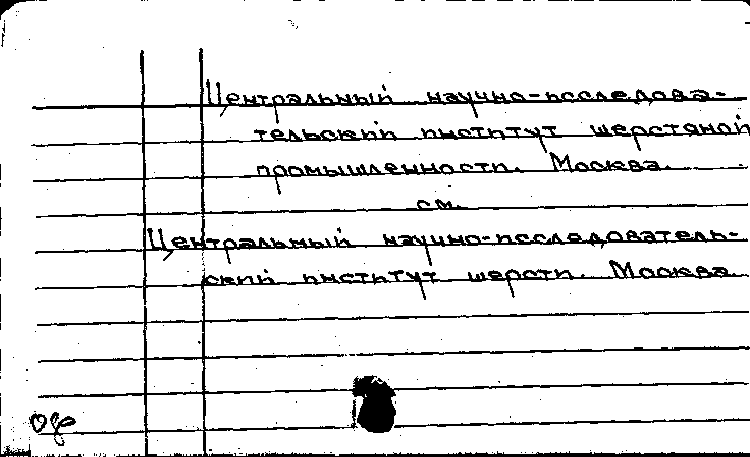 Центральный научно-исследова-
тельский институт шерстяной
промышленности. Москва.
см.
Центральный научно-исследователь-
ский институт шерсти. Москва